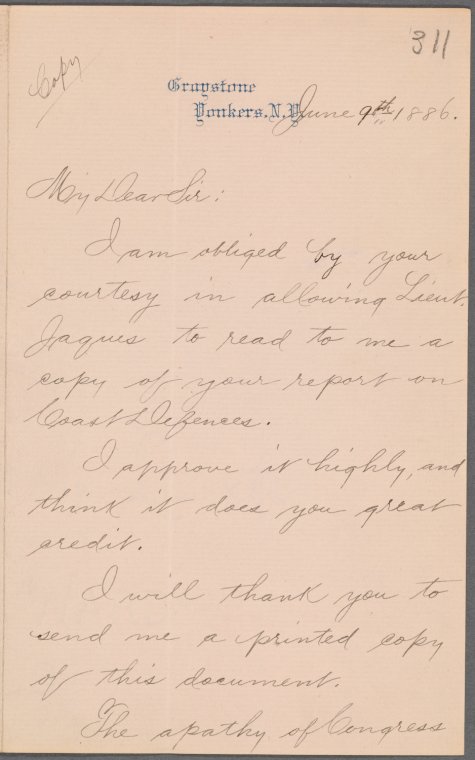 311
Copy
Graystone
Yonkers, N.Y.
June 9th 1886.
My Dear Sir:
I am obliged by your
courtesy in allowing Lieut.
Jaques to read to me a
copy of your report on
Coast Defences.
I approve it highly, and
think it does you great
credit.
I will thank you to
send me a printed copy
of this document.
The apathy of Congress